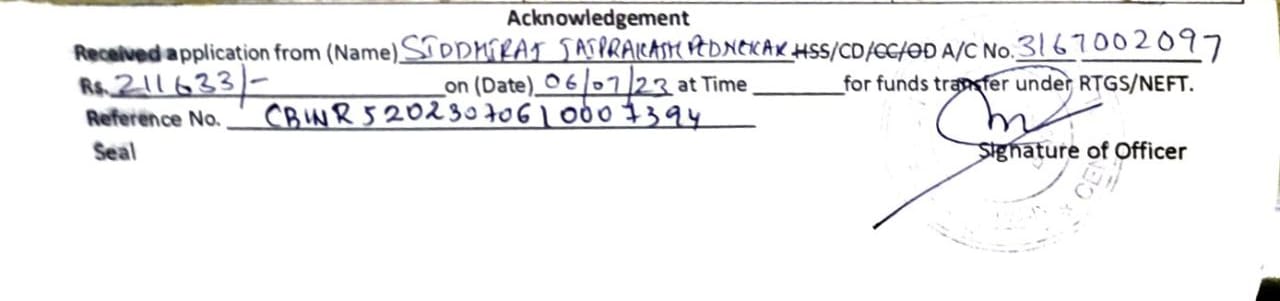 Acknowledgement
Received application from (Name) SIDDHIRAJ JAIPRAKASH PEDNEKAR HSS/CD/CC/OD A/C No. 3167002097
Rs. 211633/- on (Date) 06/07/23 at Time ________ for funds transfer under RTGS/NEFT.
Reference No. CBINR52023070610007394
Seal
Signature of Officer
CEN